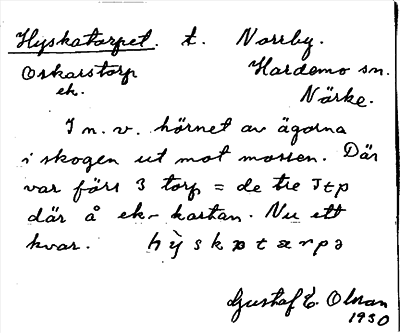 Hyskatorpet. t. Norrby.
Oskarstorp Hardemo sn.
ek. Närke.
I n. v. hörnet av ägorna
i skogen ut mot mossen. Där
var förr 3 torp = de tre Jtp
där å ek-kartan. Nu ett
kvar. hỳskotærpə
Gustaf E. Olsson
1930